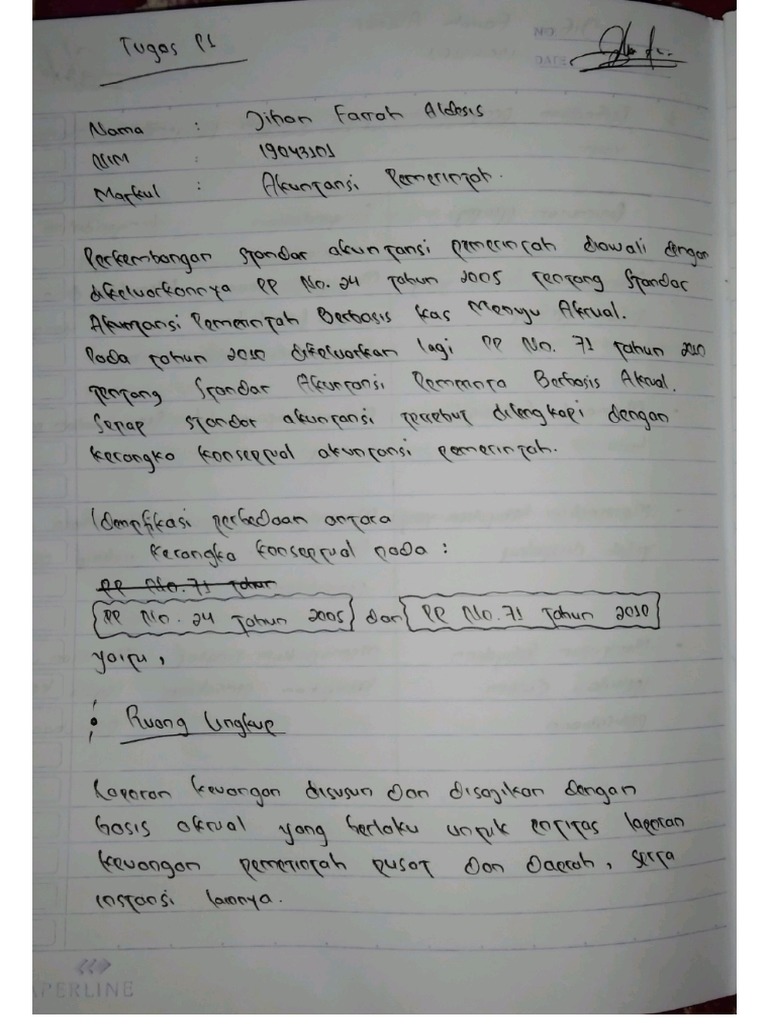 Tugas P1
Nama : Jihan Farrah Aldesis
NIM : 19043101
Matkul : Akuntansi Pemerintah.
Perkembangan standar akuntansi pemerintah diawali dengan
dikeluarkannya PP No. 24 tahun 2005 tentang Standar
Akuntansi Pemerintah Berbasis kas Menuju Akrual.
Pada tahun 2010 dikeluarkan lagi PP No. 71 tahun 2010
tentang Standar Akuntansi Pemerinta Berbasis Akrual.
Setiap standar akuntansi tersebut dilengkapi dengan
kerangka konseptual akuntansi pemerintah.
Identifikasi perbedaan antara
kerangka konseptual pada :
PP No. 71 tahun
PP No. 24 tahun 2005 dan PP No. 71 tahun 2010
yaitu,
Ruang lingkup
Laporan keuangan disusun dan disajikan dengan
basis akrual yang berlaku untuk entitas laporan
keuangan pemerintah pusat dan daerah, serta
instansi lainnya.
PERLINE